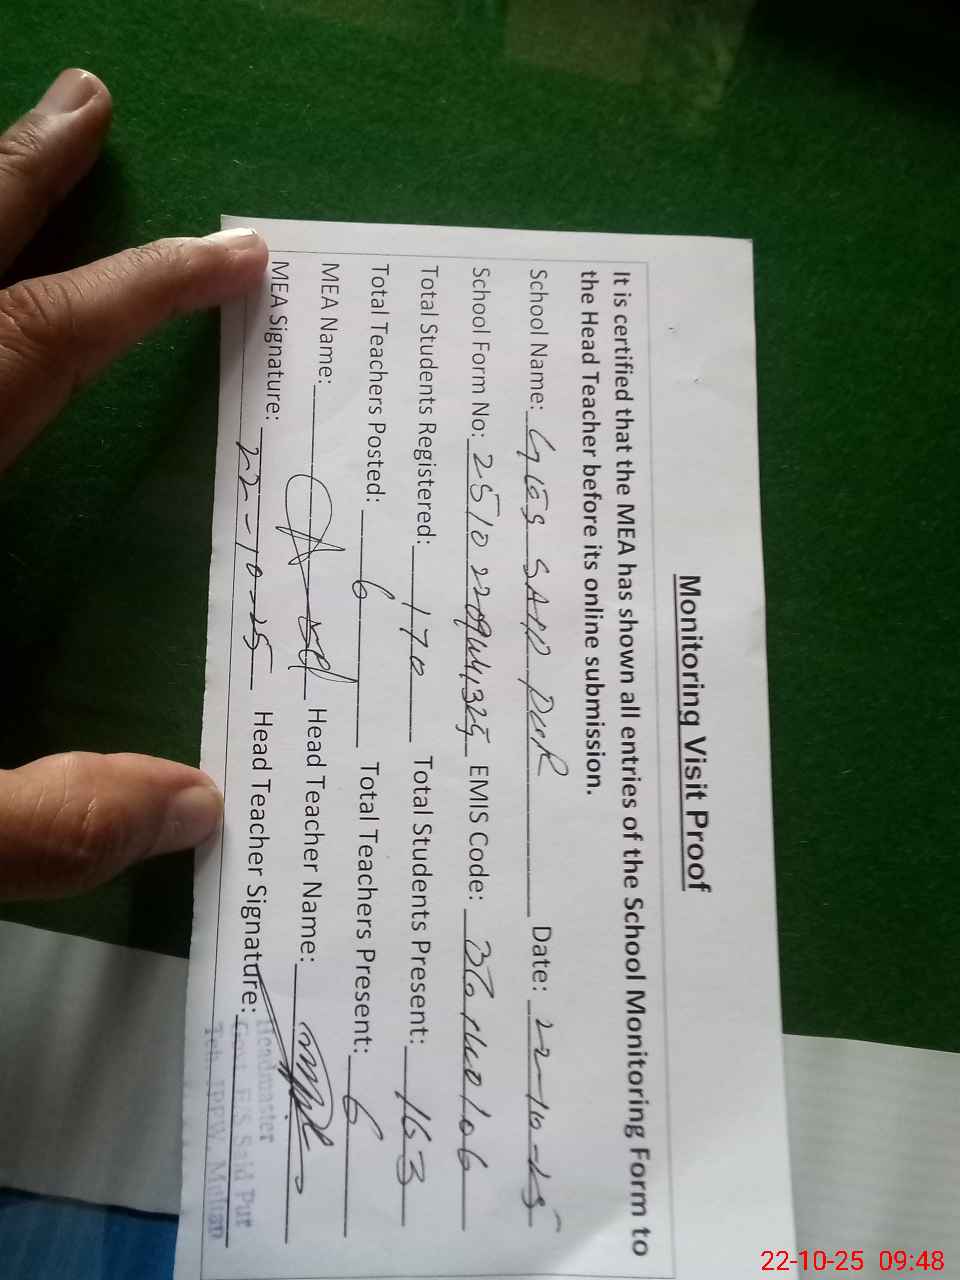 Monitoring Visit Proof
It is certified that the MEA has shown all entries of the School Monitoring Form to
the Head Teacher before its online submission.
School Name: GES SAID PUR Date: 22-10-25
School Form No: EMIS Code:
Total Students Registered: 170 Total Students Present: 163
Total Teachers Posted: 6 Total Teachers Present: 6
MEA Name: Head Teacher Name:
MEA Signature: 22-10-25 Head Teacher Signature:
Headmaster
Govt. E/S Said Pur
Teh. JPPW, Multan
22-10-25 09:48